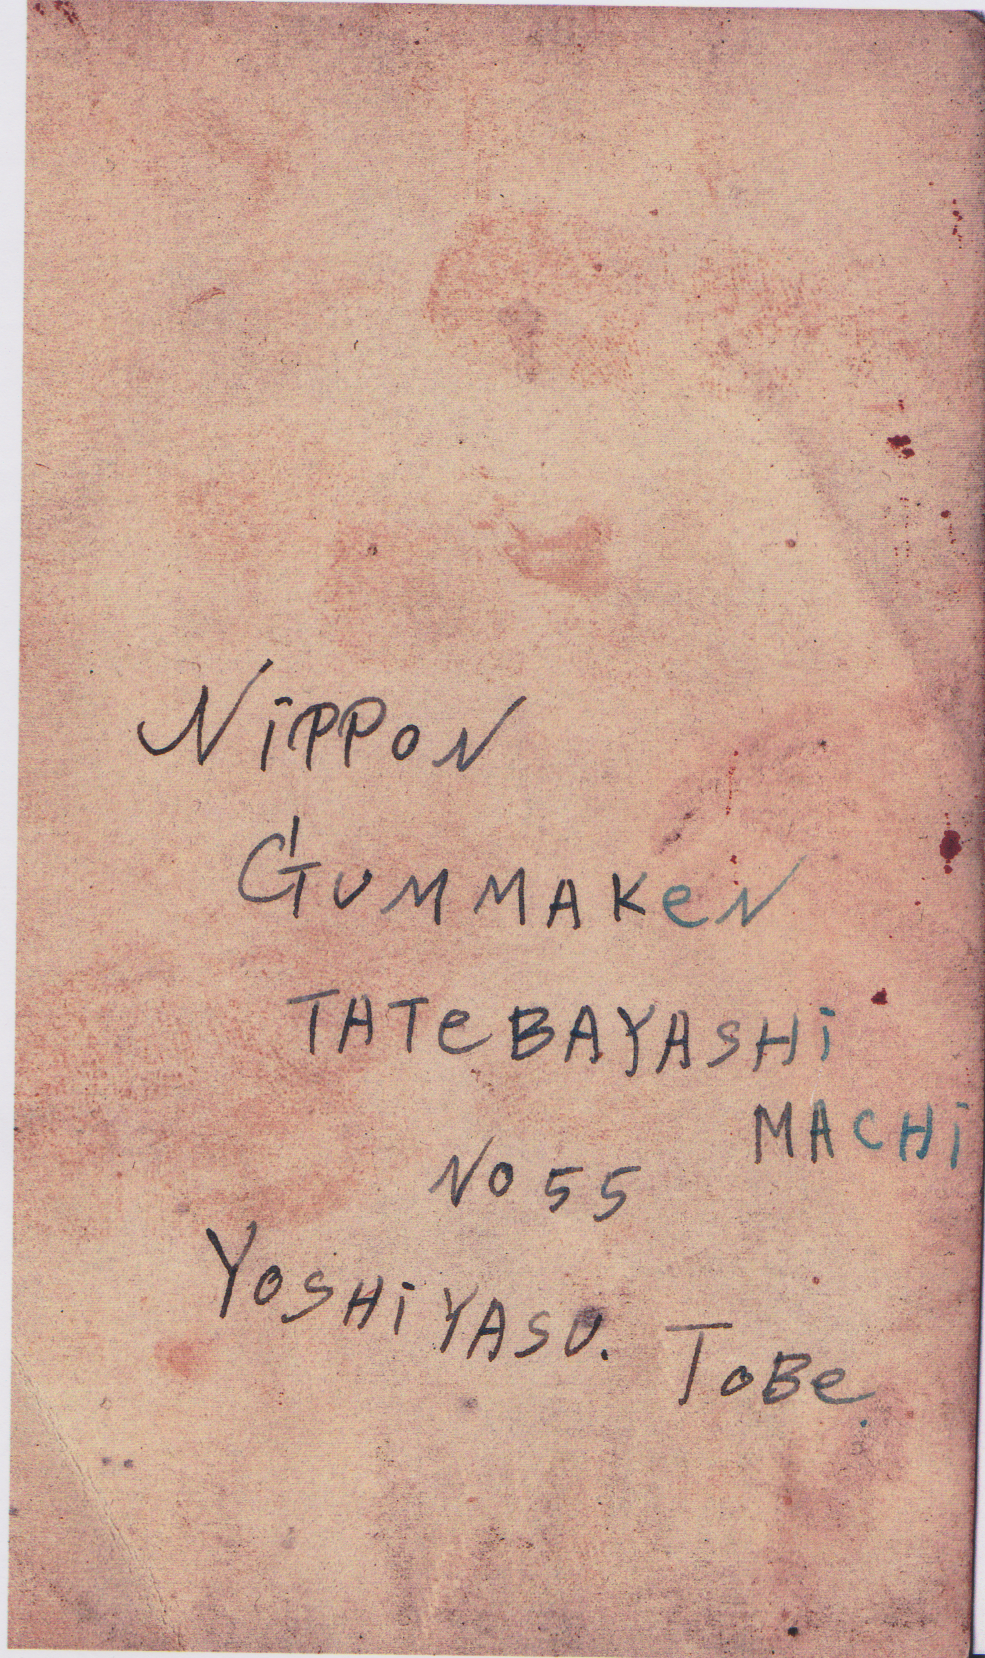 NiPPoN
GUMMAKeN
TATeBAYASHi
MACHi
No 55
YoSHiYASU. ToBe.